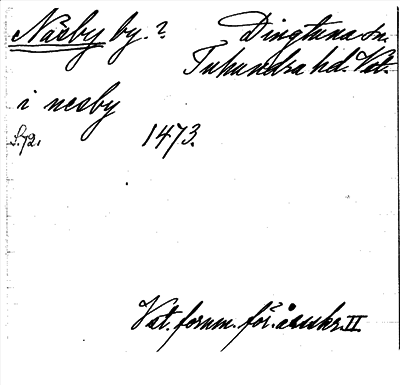 Näsby by.? Dingtuna sn.
Tuhundra hd. Vst.
i nesby
S.72. 1473.
Vst. fornm. för:s årsskr. II